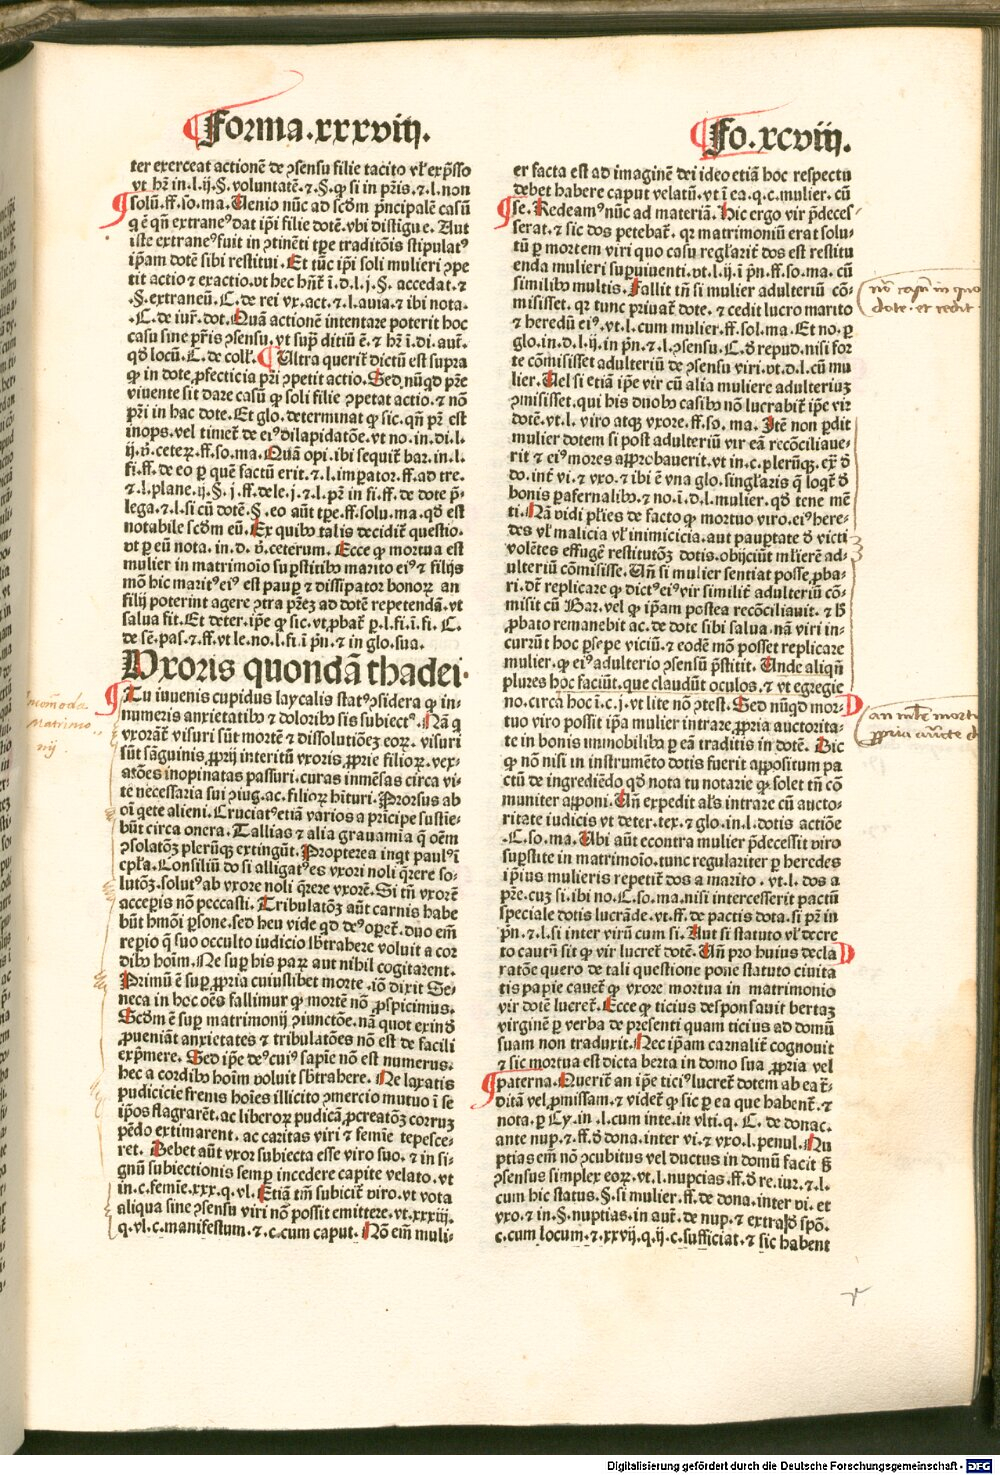 Forma.xxxviij.
Fo.xcviij.
ter exerceat actionē de ꝯsensu filie tacito vł exp̄sso
vt hr̄ in.l.ij.§.voluntatē.⁊.§.ꝙ si in pr̄is.⁊.l.non
solū.ff.so.ma.Uenio nūc ad scdm pncipalē casū
q̄ ē qn̄ extraneꝰ dat ip̄i filie dotē.vbi distigue. Aut
iste extraneꝰ fuit in ꝯtinēti tp̄e traditōnis stipulatꝰ
ip̄am dotē sibi restitui. Et tūc ip̄i soli mulieri ꝯpe
tit actio ⁊ exactio.vt hec hn̄t̄ ī.d.l.j.§. accedat.⁊
.§.extraneū.C.de rei vx.act.⁊.l.auia.⁊ ibi nota.
.C.de iur̄.dot.Quā actionē intentare poterit hoc
casu sine pr̄is ꝯsensu.vt sup̄ ditiū ē.⁊ hr̄ ī.di.aut̄.
qd̄ locū.C.de coll̄. Ultra querit̄ dictū est supra
ꝙ in dote ꝓfecticia pr̄i ꝯpetit actio.Sed nūqd pr̄e
viuente sit dare casū ꝙ soli filie ꝯpetat actio.⁊ nō
pr̄i in hac dote.Et glo.determinat ꝙ sic.qn̄ pr̄ est
inops.vel timet̄ de eiꝰ dilapidatōe.vt no.in.di.l.
ij.ꝟ.ceteꝝ.ff.so.ma.Quā opi.ibi sequit̄ bar.in.l.
fi.ff.de eo per quē factū erit.⁊.l.imꝑator.ff.ad tre.
⁊.l.plane.ij.§.j.ff.de le.j.⁊.l.pr̄ in fi.ff.de dote p̄-
lega.⁊.l.si cū dotē.§.eo aūt tp̄e.ff.solu.ma.qd̄ est
notabile scdm eū.Ex quibꝰ talis decidit̄ questio.
vt ꝑ eū nota.in.d.ꝟ.ceterum.Ecce ꝙ mortua est
mulier in matrimoīo suꝑstitibꝰ marito eiꝰ ⁊ filijs
mō hic maritꝰ eiꝰ est pauꝑ ⁊ dissipator bonoꝝ an
filij poterint agere ꝯtra pr̄eꝫ ad dotē repetendā.vt
salua fit.Et deter.ip̄e ꝙ sic.vt ꝓbat̄ ꝑ.l.fi.ī.fi. C.
de sē.pas.⁊.ff.vt le.no.l.fi ī pn̄.⁊ in glo.sua.
Uxoris quondā thadei.
Tu iuuenis cupidus laycalis statꝰ ꝯsidera ꝙ in-
numeris anxietatibꝰ ⁊ doloribꝰ sis subiectꝰ.Nā ꝗ
vxoratē visuri sūt mortē ⁊ dissolutiōeꝫ eoꝝ. visuri
sūt sāguinis ꝓprij interitū vxoris ꝓprie filioꝝ.vex-
atōes inopinatas passuri.curas inmēsas circa vi-
te necessaria sui ꝯiug.ac.filioꝝ hituri.Prorsus ab
oī qete alieni.Cruciatꝰ etiā varios a prīcipe sustie-
būt circa onera. Tallias ⁊ alia grauamia ꝗ oēm
ꝯsolatōꝫ plerūꝗ extingūt.Propterea inqt paulꝰ ī
epl̄a.Consiliū do si alligatꝰ es vxori noli q̄rere so-
lutōꝫ.solutꝰ ab vxore noli q̄rere vxorē.Si tn̄ vxorē
accepis nō peccasti.Tribulatōꝫ aūt carnis habe
būt hmōi ꝑsone.sed heu vide qd deꝰ oꝑet̄.duo em̄
reꝑio q̄ suo occulto iudicio sb̄trahere voluit a cor
dibꝰ hoīm.Ne suꝑ his paꝝ aut nihil cogitarent.
Primū ē suꝑ ꝓpria cuiuslibet morte.iō dixit Se-
neca in hoc oēs fallimur ꝙ mortē nō ꝓspicimus.
Scdm ē suꝑ matrimonij ꝯiunctōe.nā quot exinde
ꝓueniāt anxietates ⁊ tribulatōes nō est de facili
exp̄mere. Sed ip̄e deꝰ cuiꝰ sapīe nō est numerus.
hec a cordibꝰ hoīm voluit sb̄trahere.Ne laxatis
pudicicie frenis hoīes illicito ꝯmercio mutuo ī se
ip̄os flagrarēt.ac liberoꝝ pudicā ꝓcreatōꝫ corruꝫ
pēdo extimarent. ac caritas viri ⁊ femīe tepesce-
ret. Debet aūt vxor subiecta esse viro suo.⁊ in si-
gnū subiectionis semꝑ incedere capite velato.vt
in.c.femīe.xxx.q.vl.Etiā tm̄ subicit̄ viro.vt vota
aliqua sine ꝯsensu viri nō possit emittere.vt.xxxiij.
q.vl.c.manifestum.⁊.c.cum caput.Nō em̄ muli-
er facta est ad imaginē dei ideo etiā hoc respectu
debet habere caput velatū.vt ī ea.q.c.mulier. cū
se. Redeamꝰ nūc ad materiā.Hic ergo vir p̄deces-
serat.⁊ sic dos petebat̄. qꝛ matrimoniū erat solu-
tū ꝑ mortem viri quo casu regl̄arit̄ dos est restitu
enda mulieri suꝑuiuenti.vt.l.ij.ī pn̄.ff.so.ma. cū
similibꝰ multis.Fallit tn̄ si mulier adulteriū cō-
misisset.qꝛ tunc priuat̄ dote.⁊ cedit lucro marito
⁊ heredū eiꝰ.vt.l.cum mulier.ff.sol.ma.Et no.ꝑ
glo.in.d.l.ij.in pn̄.⁊.l.ꝯsensu.C.ð repud.nisi for
te cōmisisset adulteriū de ꝯsensu viri.vt.d.l.cū mu
lier.Uel si etiā ip̄e vir cū alia muliere adulteriuꝫ
ꝯmisisset.qui his duobꝰ casibꝰ nō lucrabit̄ ip̄e vir
dotē.vt.l. viro atqꝫ vxore.ff.so. ma. Itē non ꝑdit
mulier dotem si post adulteriū vir eā recōciliaue-
rit ⁊ eiꝰ mores approbauerit.vt in.c.plerūꝗ.ex̄ ð
do.int̄ vi.⁊ vxo.⁊ ibi ē vna glo.singl̄aris q̄ loqt̄ ð
bonis ꝑafernalibꝰ.⁊ no.ī.d.l.mulier.qd̄ tene mē
ti.Nā vidi pl̄ies de facto ꝙ mortuo viro.eiꝰ here-
des vł malicia vł inimicicia.aut pauꝑtate ð victi
volētes effugē restitutōꝫ dotis.obijciūt ml̄ierē ad-
ulteriū cōmisisse.Un̄ si mulier sentiat posse ꝓba-
ri.dr̄t replicare ꝙ dictꝰ eiꝰ vir similit̄ adulteriū cō-
misit cū Bar.vel ꝙ ip̄am postea recōciliauit.⁊ h̄
ꝓbato remanebit ac.de dote sibi salua.nā viri in-
currūt hoc ꝑsepe viciū.⁊ eodē mō posset replicare
mulier.ꝙ eiꝰ adulterio ꝯsensū p̄stitit. Unde aliqn̄
plures hoc faciūt.que claudūt oculos.⁊ vt egregie
no.circa hoc ī.c.j.vt lite nō ꝯtest. Sed nūqd mor-
tuo viro possit ip̄a mulier intrare ꝓpria auctorita-
te in bonis immobilibꝰ ꝑ eā traditis in dotē. Dic
ꝙ nō nisi in instrumēto dotis fuerit appositum pa
ctū de ingrediēdo qd̄ nota tu notarie ꝙ solet tn̄ cō
muniter apponi.Un̄ expedit al̄s intrare cū aucto-
ritate iudicis vt deter.tex.⁊ glo.in.l.dotis actiōe
.C.so.ma.Ubi aūt econtra mulier p̄decessit viro
suꝑstite in matrimoīo.tunc regulariter ꝑ heredes
ip̄ius mulieris repetit̄ dos a marito.vt.l. dos a
pr̄e.cuꝫ si.ibi no.C.so.ma.nisi intercesserit pactū
speciale dotis lucrāde.vt.ff.de pactis dota.si pr̄ in
pn̄.⁊.l.si inter virū cum si.Aut si statuto vł decre
to cautū sit ꝙ vir lucret̄ dotē.Un̄ pro huius decla
ratōe quero de tali questione pone statuto ciuita
tis papie cauet̄ ꝙ vxore mortua in matrimonio
vir dotē lucret̄.Ecce ꝙ ticius desponsauit bertaꝫ
virginē ꝑ verba de presenti quam ticius ad domū
suam non traduxit.Nec ip̄am carnalit̄ cognouit
⁊ sic mortua est dicta berta in domo sua ꝓpria vel
paterna.Querit̄ an ip̄e ticiꝰ lucret̄ dotem ab ea t̄-
ditā vel ꝓmissam.⁊ videt̄ ꝙ sic ꝑ ea que habent̄.⁊
nota.ꝑ Cy.in.l.cum inte.in vlti.q. C. de donac.
ante nup.⁊.ff.ð dona.inter vi.⁊ vxo.l.penul.Nu
ptias em̄ nō ꝯcubitus vel ductus in domū facit s̄
ꝯsensus simplex eoꝝ.vt.l.nupcias.ff.ð re.iur.⁊.l.
cum hic status.§.si mulier.ff.de dona.inter vi. et
vxo.⁊ in.§.nuptias.in aut̄.de nup.⁊ extra ð spō.
c.cum locum.⁊.xxvij.q.ij.c.sufficiat.⁊ sic habent
dote. et cedit
Digitalisierung gefördert durch die Deutsche Forschungsgemeinschaft - DFG